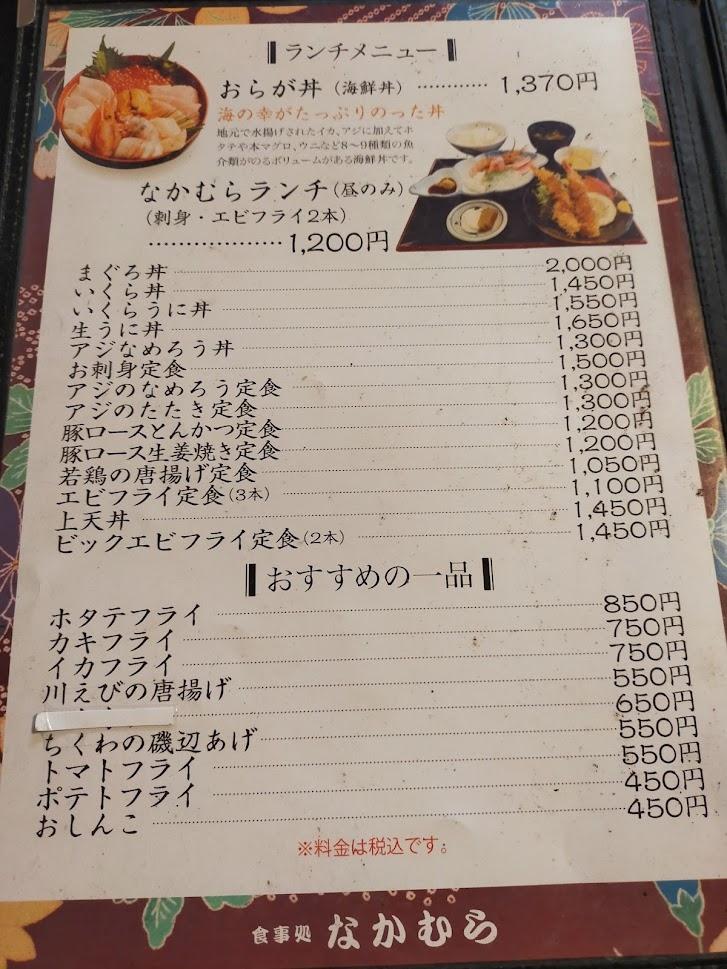 ランチメニュー
おらが丼（海鮮丼）…………1,370円
海の幸がたっぷりのった丼
地元で水揚げされたイカ、アジに加えてホ
タテや本マグロ、ウニなど8〜9種類の魚
介類がのるボリュームがある海鮮丼です。
なかむらランチ（昼のみ）
（刺身・エビフライ2本）
………………1,200円
まぐろ丼 2,000円
いくら丼 1,450円
いくらうに丼 1,550円
生うに丼 1,650円
アジなめろう丼 1,300円
お刺身定食 1,500円
アジのなめろう定食 1,300円
アジのたたき定食 1,300円
豚ロースとんかつ定食 1,200円
豚ロース生姜焼き定食 1,200円
若鶏の唐揚げ定食 1,050円
エビフライ定食（3本） 1,100円
上天丼 1,450円
ビックエビフライ定食（2本） 1,450円
おすすめの一品
ホタテフライ 850円
カキフライ 750円
イカフライ 750円
川えびの唐揚げ 550円
650円
ちくわの磯辺あげ 550円
トマトフライ 550円
ポテトフライ 450円
おしんこ 450円
※料金は税込です。
食事処 なかむら